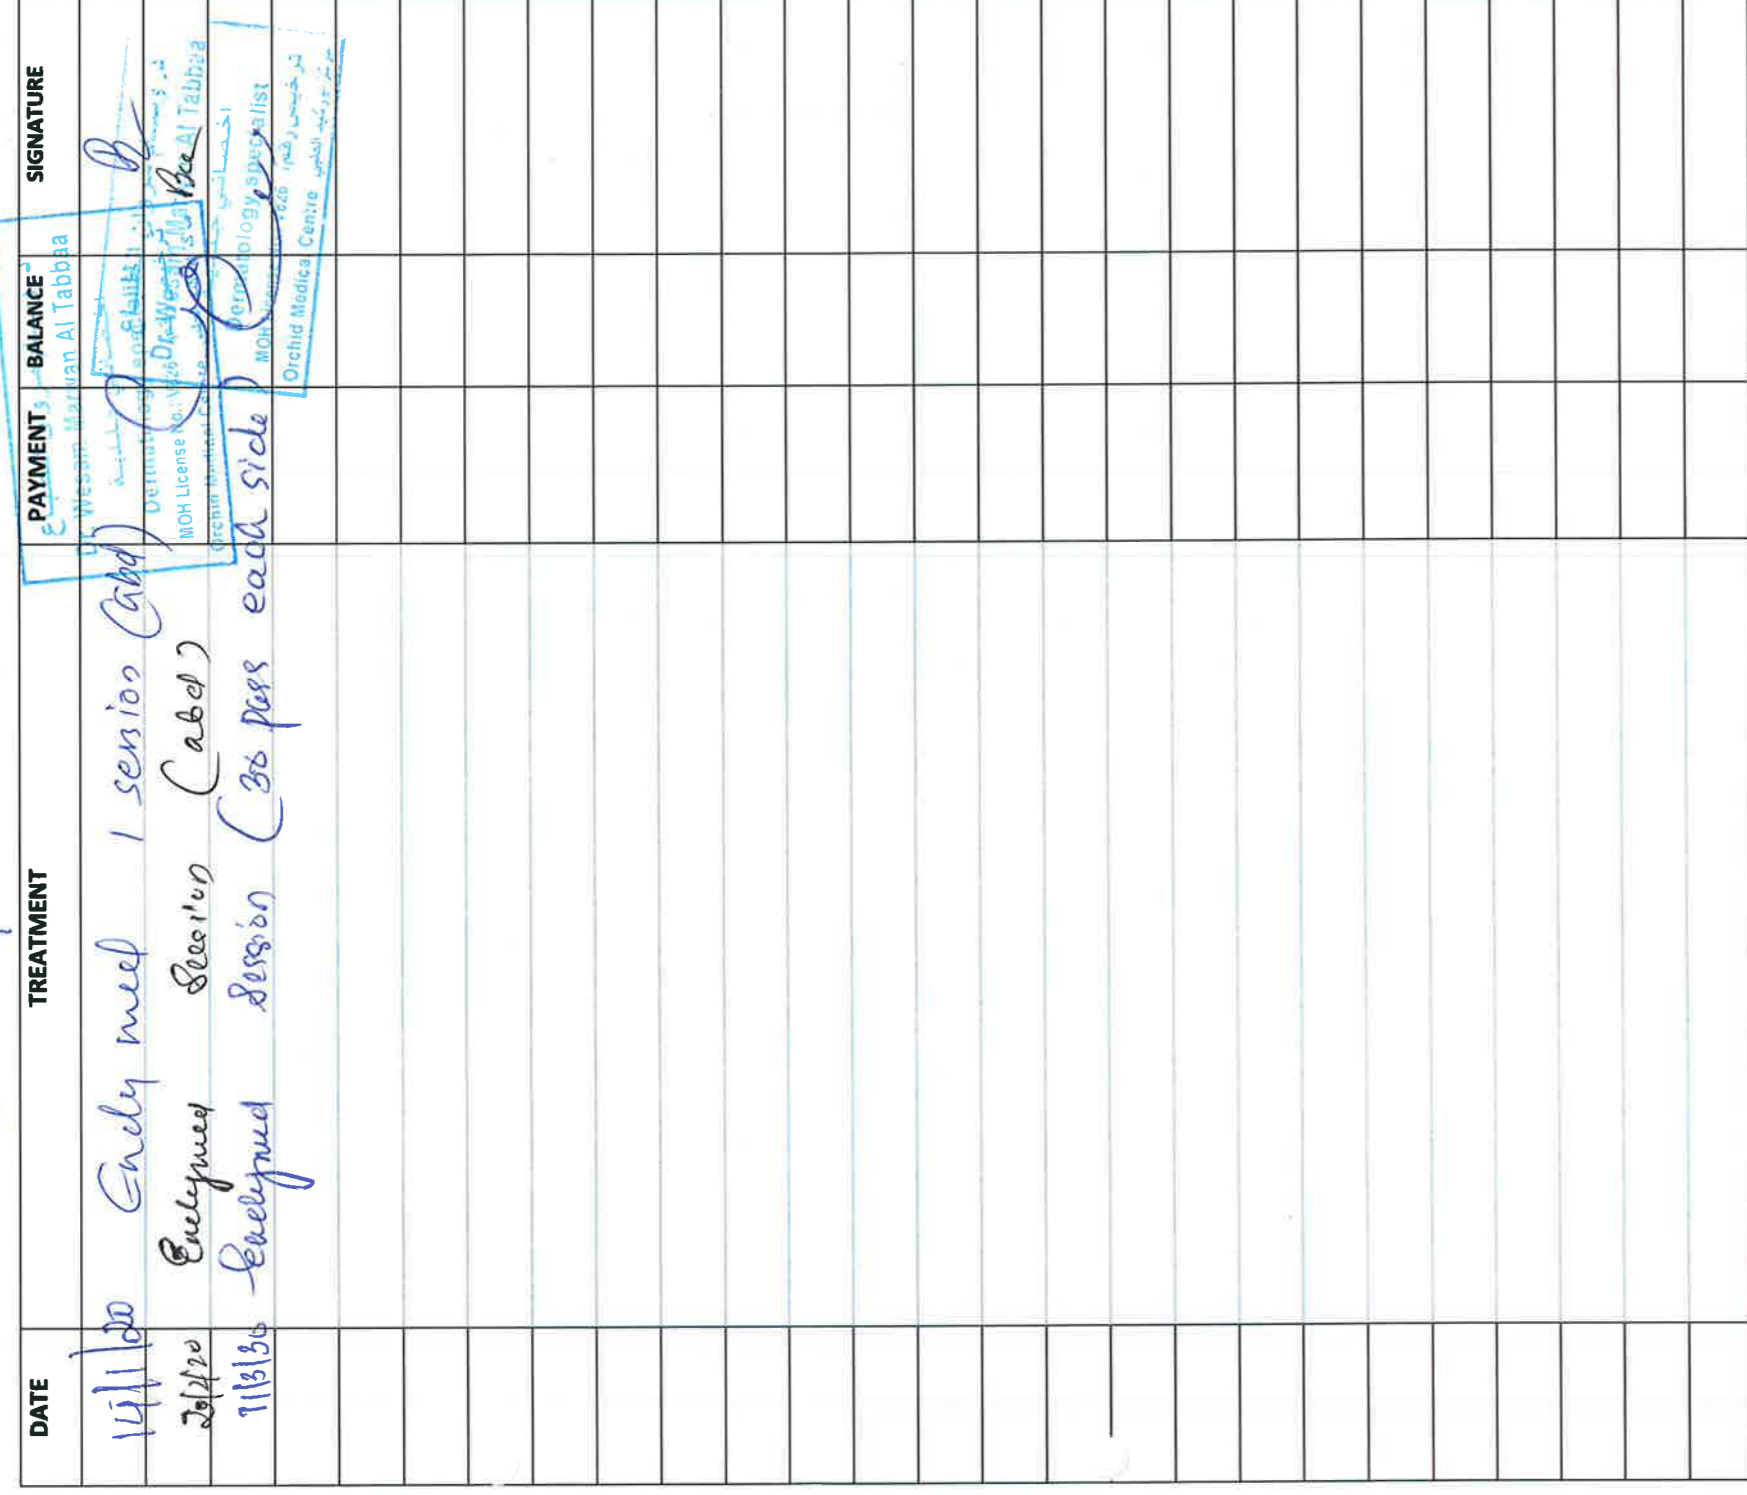 DATE TREATMENT PAYMENT BALANCE SIGNATURE
14/1/20 Endymed 1 session (abd)
20/2/20 Endymed Session (abd)
Endymed Session (30 pass each side)
Dr. Wesam Marwan Al Tabbaa
Dermatology specialist
MOH License No.:
Orchid Medical Centre
Dr. Wesam Marwan Al Tabbaa
اخصائي
Dermatology specialist
MOH License
ترخيص رقم
Orchid Medical Centre